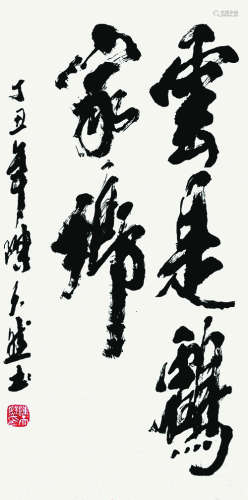 雲是鶴
家鄉
丁丑年陳天然书